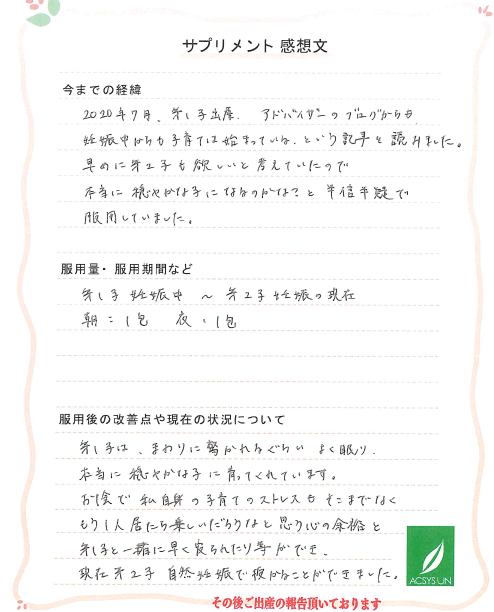 サプリメント 感想文
今までの経緯
2020年7月、第1子出産. アドバイザーのブログからも
妊娠中からも子育ては始まっている. という記事を読みました。
早めに第2子も欲しいと考えていたので
本当に穏やかな子になるのかな?と半信半疑で
服用していました。
服用量・服用期間など
第1子 妊娠中 ~ 第2子妊娠の現在
朝:1包 夜:1包
服用後の改善点や現在の状況について
第1子は、まわりに驚かれるぐらい よく眠り.
本当に穏やかな子に育ってくれています。
お陰で私自身の子育てのストレスもそこまでなく
もう1人居たら楽しいだろうなと思う心の余裕と
第1子と一緒に早く寝られたり等ができ.
現在第2子 自然妊娠で授かることができました。
ACSYSUN
その後ご出産の報告頂いております